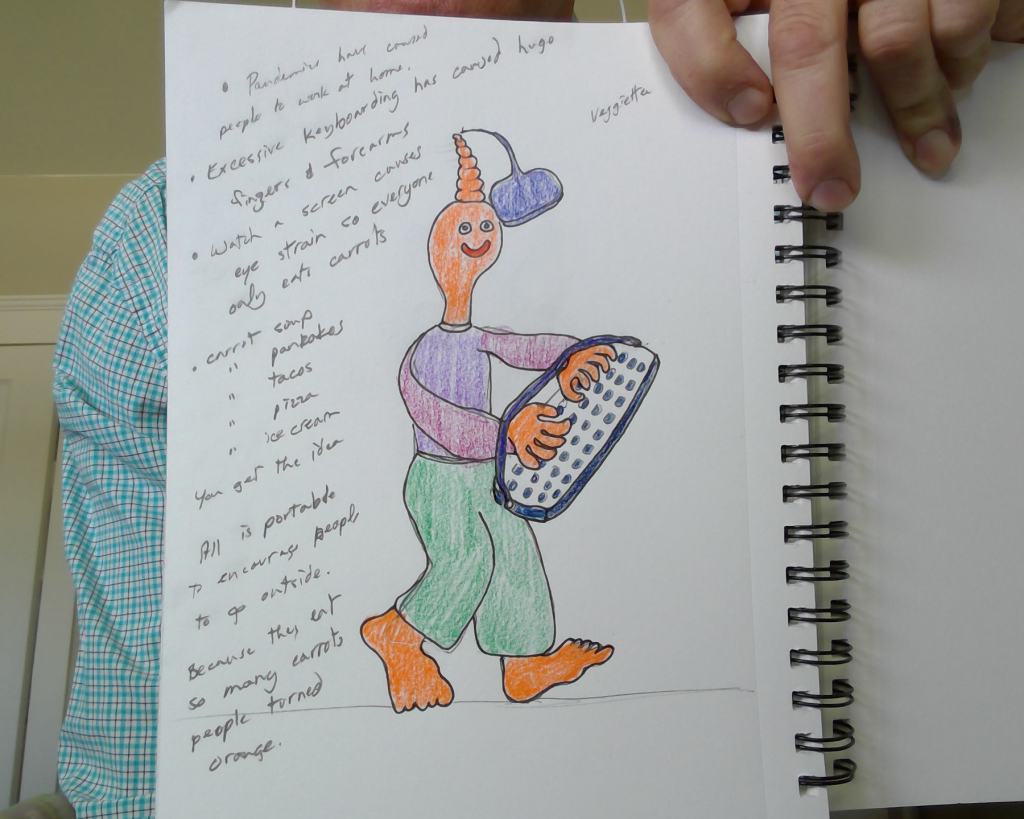 • Pandemics have caused
people to work at home.
• Excessive keyboarding has caused huge
fingers & forearms
• Watch a screen causes
eye strain so everyone
only eats carrots
• carrot soup
" pankakes
" tacos
" pizza
" ice cream
You get the idea
All is portable
to encourage people
to go outside.
Because they eat
so many carrots
people turned
orange.
Veggietta